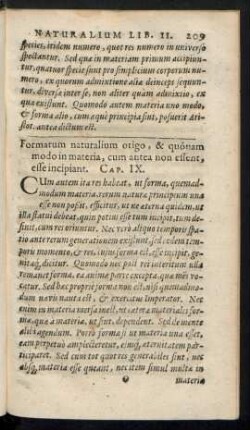 NATURALIUM LIB. II. 209
species, itidem numero, quot res numero in universo
spectantur. Sed quæ in materiam primum accipiun-
tur, quatuor specie sunt pro simplicium corporum nu-
mero, ex quorum admixtione aliæ deinceps sequun-
tur, diversæ interse, non aliter quàm admixtio, ex
qua existunt. Quomodo autem materia uno modo,
& forma alio, cum aqui principia sint, putavit Aristot.
antea dictum est.
Formarum naturalium origo, & quónam
modo in materia, cum antea non essent,
esse incipiant. Cap. IX.
CUm autem ita res habeat, ut forma, quemad-
modum materia rerum naturæ principium una
esse non possit, efficitur, ut ne æterna quidem, ut
illa statui debeat, quin potius esse tum incipit, tum de-
sinit, cum res existunt. Nec verò aliquo temporis spa-
tio ante rerum generationem existunt, sed eodem tem-
poris momento, & res, & eius forma tal esse incipit, ge-
nita dicitur. Quomodo nec post rei interitum ulla
remanet forma, ea anima parte excepta, quæ mens di-
citur. Sed hæc propriè forma non est, nisi quomodo
dum navis nauta est, & exercitus Imperator. Nec
enim ex materia vi ortus inest, ut cæteræ materiales for-
mæ, quæ à materia, ut sint, dependent. Sed de mente
aliàs agendum. Porrò forma si ut materia una esset,
eam perpetuò amplecteretur, eiusque æternitatem par-
ticiparet. Sed cum tot quot res generabiles sint, nec
absque materia esse queant, nec item simul multa in
materia